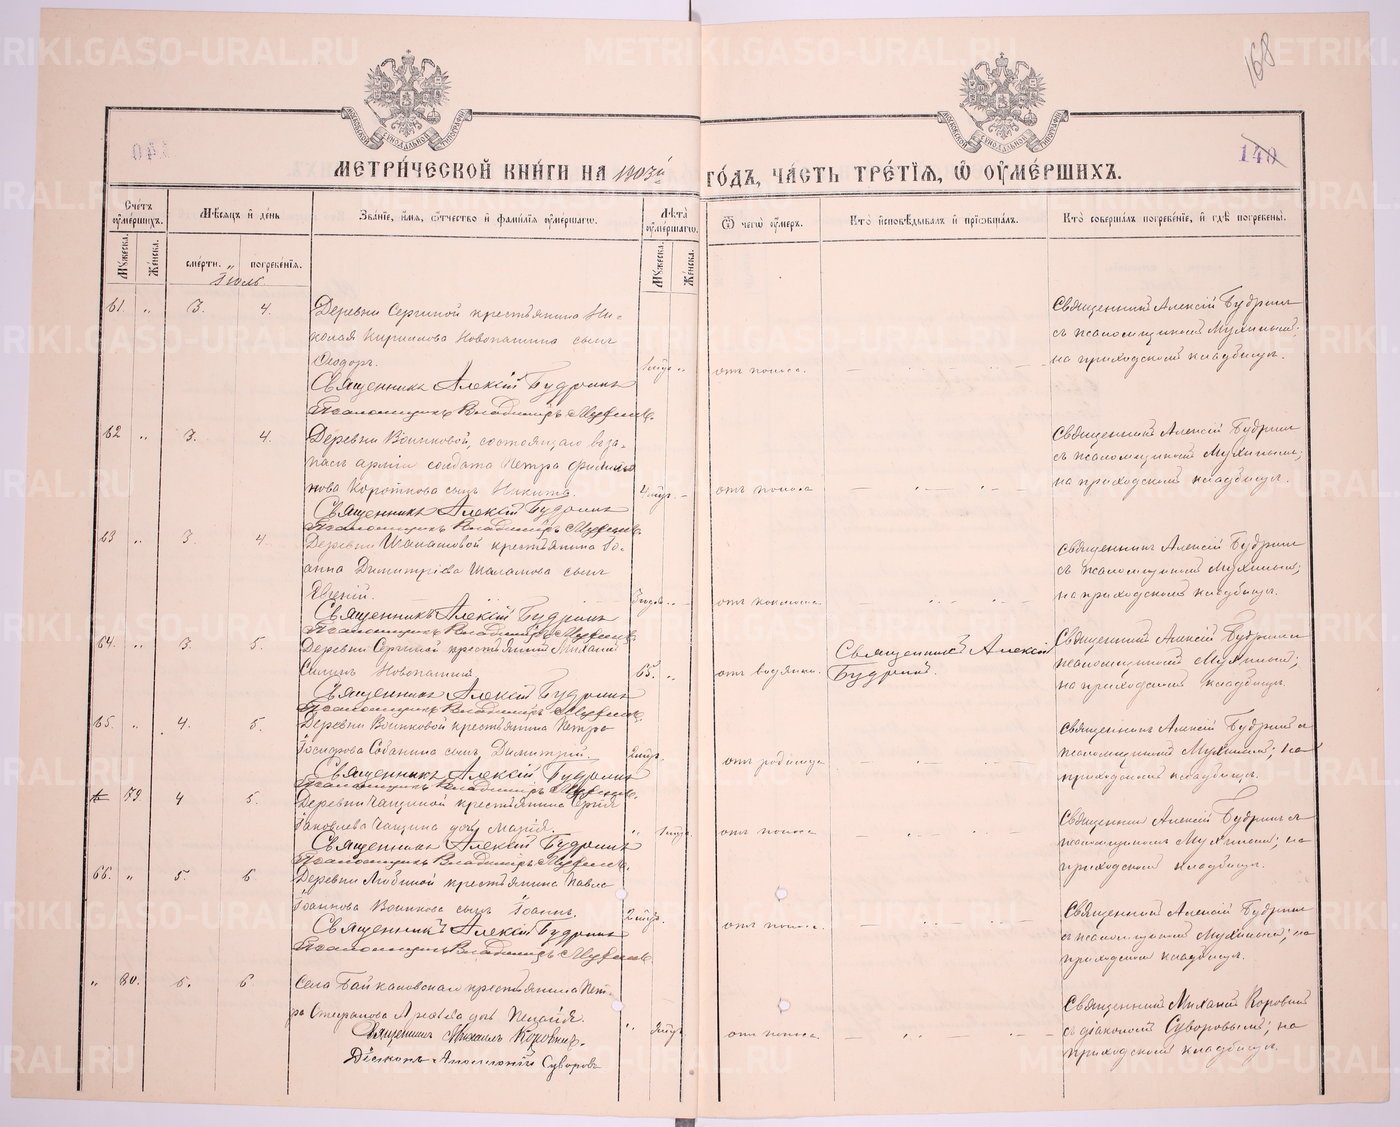 168
140
МЕТРИ́ЧЕСКОЙ КНИ́ГИ НА 1903й ГО́ДЪ, ЧА́СТЬ ТРЕ́ТІѦ, Ѽ ОУМЕ́РШИХЪ.
Счетъ оумершихъ.
Мужеска.
Женска.
Мѣсяцъ и день
смерти.
погребенія.
Званіе, имя, отчество и фамилія оумершаго.
Лѣта оумершаго.
Мужеска.
Женска.
Ѿ чегѡ оумеръ.
Кто исповѣдывалъ и пріобщалъ.
Кто совершалъ погребеніе, и гдѣ погребены.
Іюль
61. " 3. 4.
Деревни Сергиной крестьянина Ни-
колая Кириллова Новопашина сынъ
Ѳеодоръ.
отъ поноса.
Священникъ Алексій Будринъ
съ псаломщикомъ Мухинымъ;
на приходскомъ кладбищѣ.
Священникъ Алексій Будринъ
Псаломщикъ Владимиръ Мухинъ.
62 " 3. 4.
Деревни Воинковой, состоящаго въ за-
пасѣ арміи солдата Петра Филимо
нова Короткова сынъ Никита.
отъ поноса
Священникъ Алексій Будринъ
съ псаломщикомъ Мухинымъ;
на приходскомъ кладбищѣ.
Священникъ Алексій Будринъ
Псаломщикъ Владимиръ Мухинъ.
63 " 3. 4.
Деревни крестьянина Іо-
анна Димитріева Шаламова сынъ
Евгеній.
отъ коклюша.
Священникъ Алексій Будринъ
съ псаломщикомъ Мухинымъ;
на приходскомъ кладбищѣ.
Священникъ Алексій Будринъ
Псаломщикъ Владимиръ Мухинъ.
64. " 3. 5.
Деревни Сергиной крестьянинъ Михаилъ
Новопашинъ
65. "
отъ водянки.
Священникъ Алексій
Будринъ.
Священникъ Алексій Будринъ
псаломщикомъ Мухинымъ;
на приходскомъ кладбищѣ.
Священникъ Алексій Будринъ
Псаломщикъ Владимиръ Мухинъ.
65. " 4. 5.
Деревни Воинковой крестьянина Петра
Іосифова Собанина сынъ Димитрій.
отъ родимца
Священникъ Алексій Будринъ съ
псаломщикомъ Мухинымъ; на
приходскомъ кладбищѣ.
Священникъ Алексій Будринъ
Псаломщикъ Владимиръ Мухинъ.
79. 4 5.
Деревни Чащиной крестьянина Сергія
Іаковлева Чащина дочь Марія.
отъ поноса
Священникъ Алексій Будринъ съ
псаломщикомъ Мухинымъ; на
приходскомъ кладбищѣ.
Священникъ Алексій Будринъ
Псаломщикъ Владимиръ Мухинъ.
66. " 5. 6
Деревни Любиной крестьянина Павла
Іоаннова Воинкова сынъ Іоаннъ.
отъ поноса.
Священникъ Алексій Будринъ
съ псаломщикомъ Мухинымъ; на
приходскомъ кладбищѣ.
Священникъ Алексій Будринъ
Псаломщикъ Владимиръ Мухинъ.
" 80. 5. 6
Села Байкаловскаго крестьянина Пет-
ра Стефанова дочь Пелагія.
отъ поноса.
Священникъ Михаилъ Коровинъ
съ діакономъ Суворовымъ; на
приходскомъ кладбищѣ.
Священникъ Михаилъ Коровинъ.
Діаконъ Аполлоній Суворовъ
METRIKI.GASO-URAL.RU